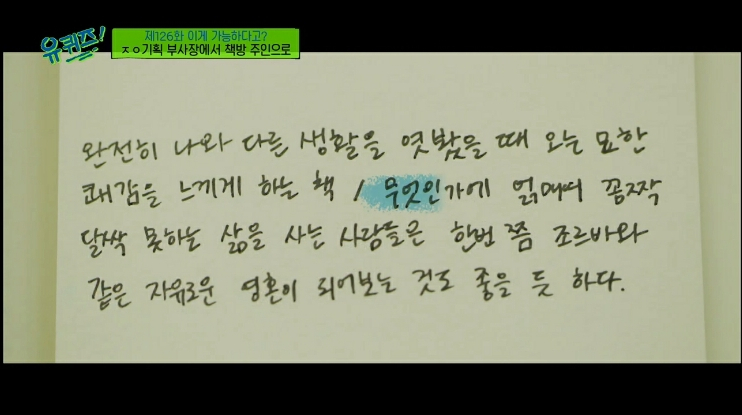 유퀴즈!
제126화 이게 가능하다고?
ㅈㅇ기획 부사장에서 책방 주인으로
완전히 나와 다른 생활을 엿봤을 때 오는 묘한
쾌감을 느끼게 하는 책 / 무엇인가에 얽매여 꼼짝
달싹 못하는 삶을 사는 사람들은 한번쯤 조르바와
같은 자유로운 영혼이 되어보는 것도 좋을 듯 하다.